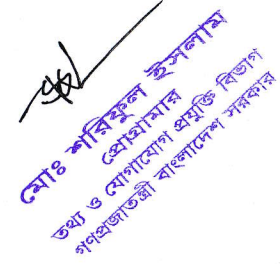 মোঃ শরিফুল ইসলাম
প্রোগ্রামার
তথ্য ও যোগাযোগ প্রযুক্তি বিভাগ
গণপ্রজাতন্ত্রী বাংলাদেশ সরকার